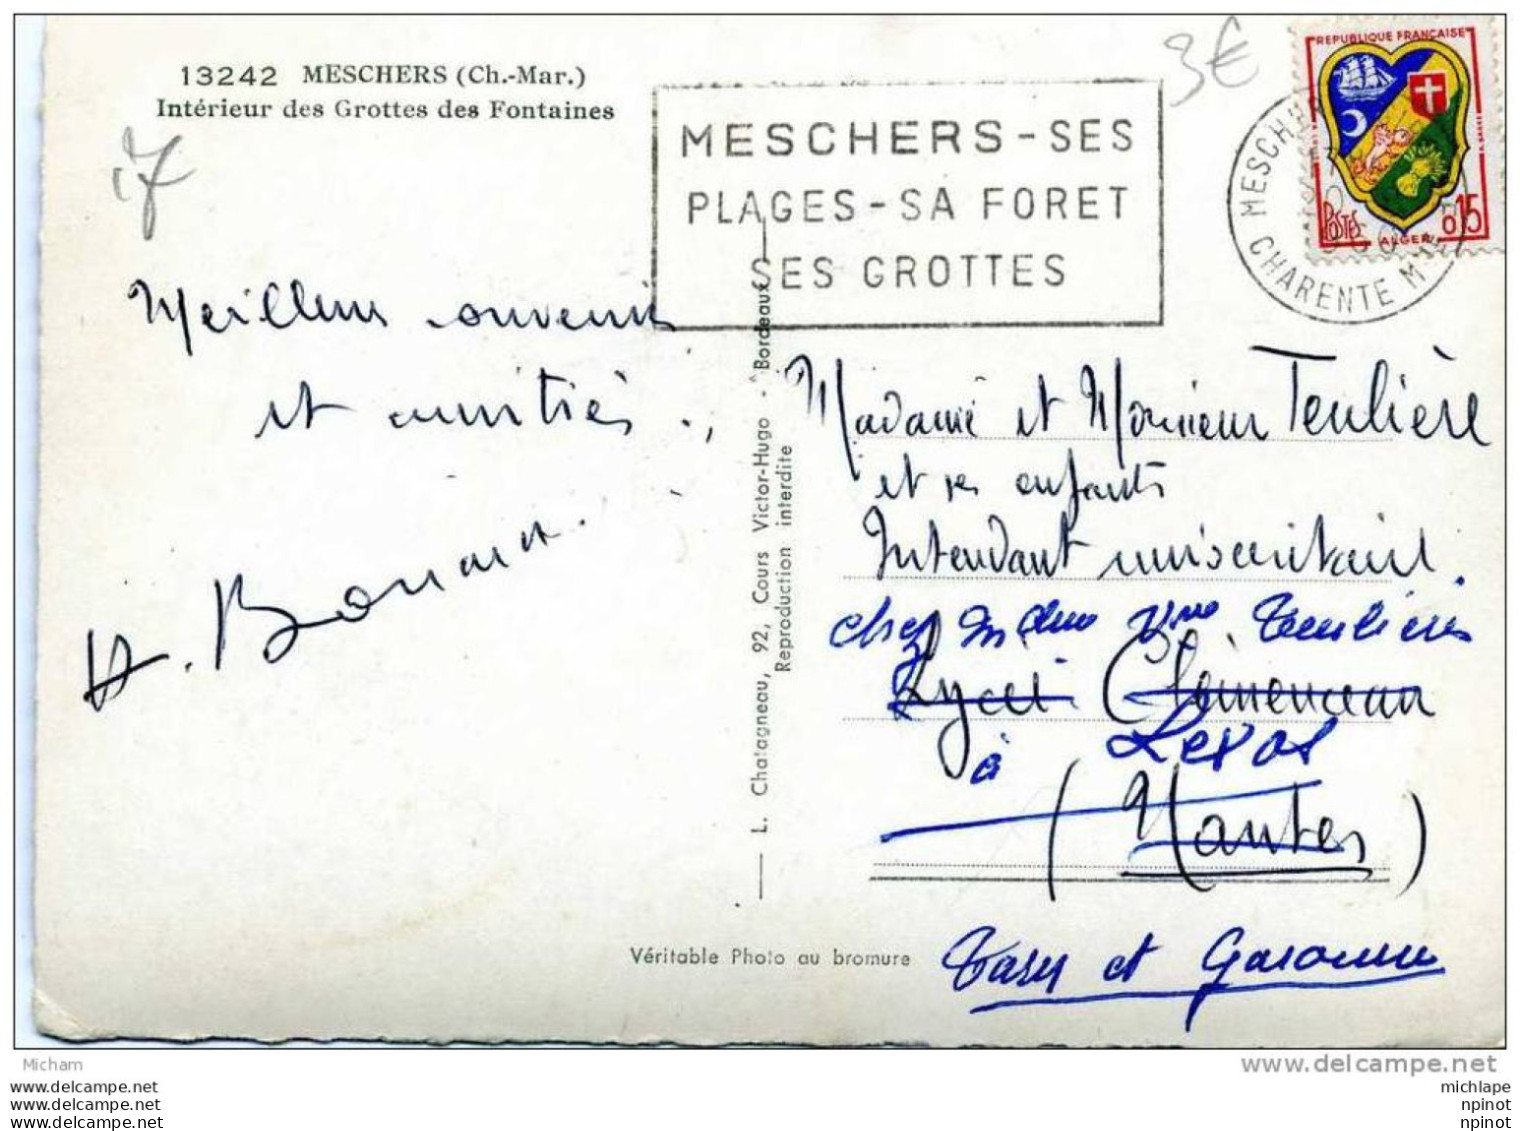 13242 MESCHERS (Ch.-Mar.)
Intérieur des Grottes des Fontaines
17
3€
MESCHERS - SES
PLAGES - SA FORET
SES GROTTES
REPUBLIQUE FRANÇAISE
POSTES
ALGER
0,15
MESCHERS
CHARENTE MME
Meilleurs souvenirs
et amitiés.
Madame et Monsieur Teulière
et ses enfants
Intendant universitaire.
chez Mdme Vve Teulière
Lycée Clemenceau
à
(Nantes)
Tarn et Garonne
L. Chatagneau, 92, Cours Victor-Hugo - Bordeaux
Reproduction interdite
Véritable Photo au bromure
Micham
www.delcampe.net
www.delcampe.net
www.delcampe.net
www.delcampe.net
michlape
npinot
npinot